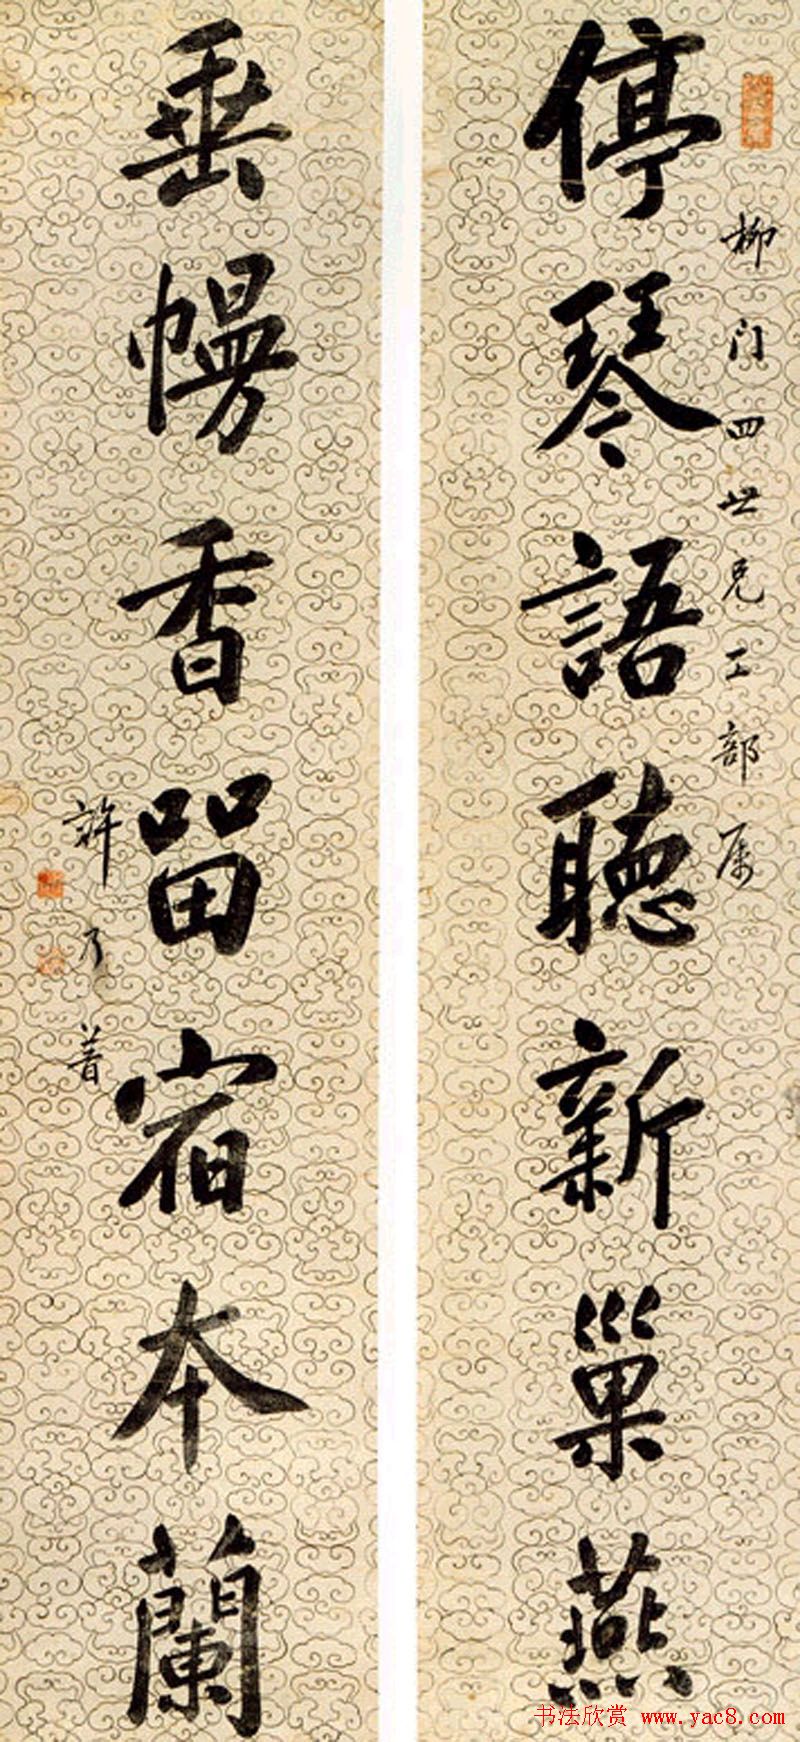 柳门四世兄工部属
停琴語聽新巢燕
垂幔香留宿本蘭
許乃普
书法欣赏 www.yac8.com